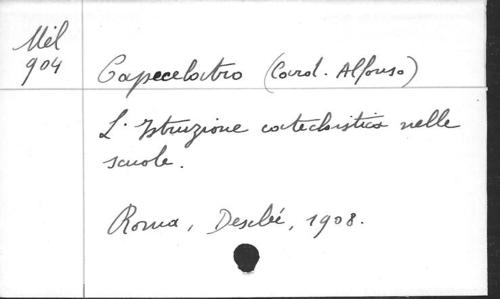 Mél
904
Capecelatro (Card. Alfonso)
L'Istruzione catechistica nelle
scuole.
Roma, Desclée, 1908.